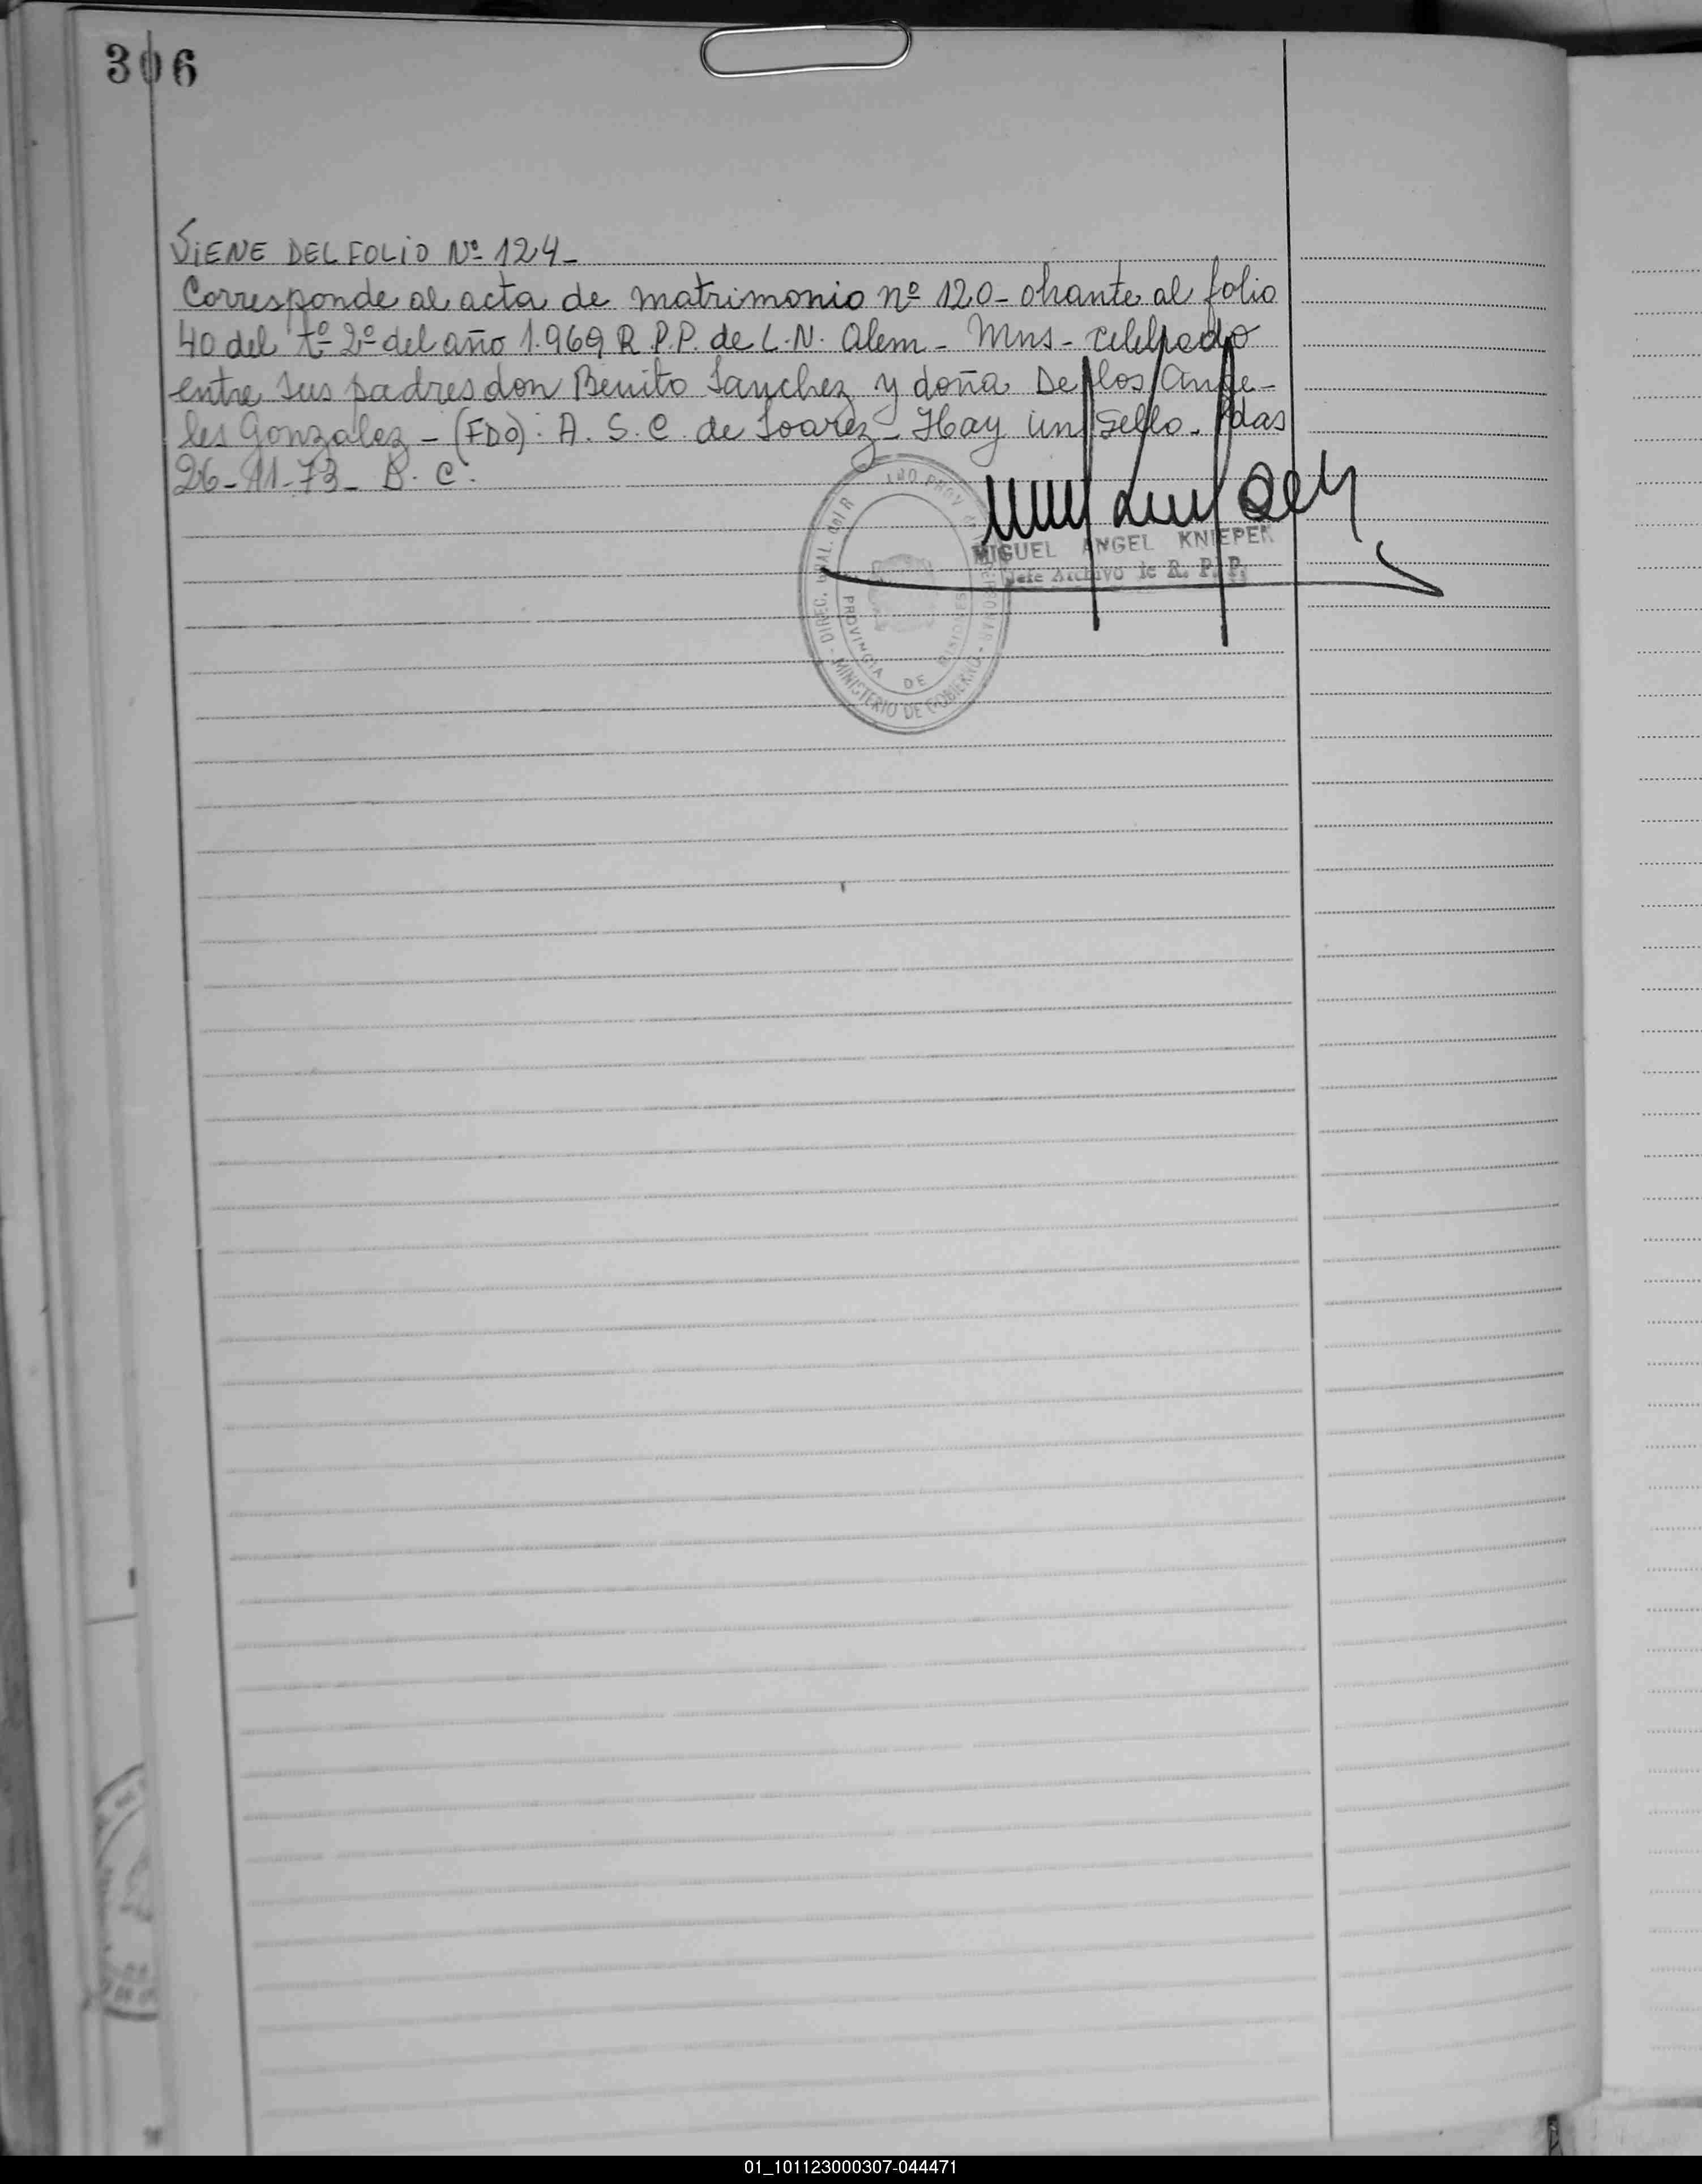 306
VIENE DEL FOLIO Nº 124-
Corresponde al acta de matrimonio nº 120- obrante al folio
40 del tº 2º del año 1.969 R.P.P. de L.N. Alem- Mns- celebrado
entre sus padres don Benito Sanchez y doña De los Ange-
les Gonzalez - (FDO). A. S. C. de Soarez- Hay un sello. Pdas
26-11-73- B. C.
MIGUEL ANGEL KNIEPER
Jefe Archivo de R. P. P.
DIREC. GRAL. del R
MINISTERIO DE GOBIERNO
PROVINCIA DE MISIONES
01_101123000307-044471